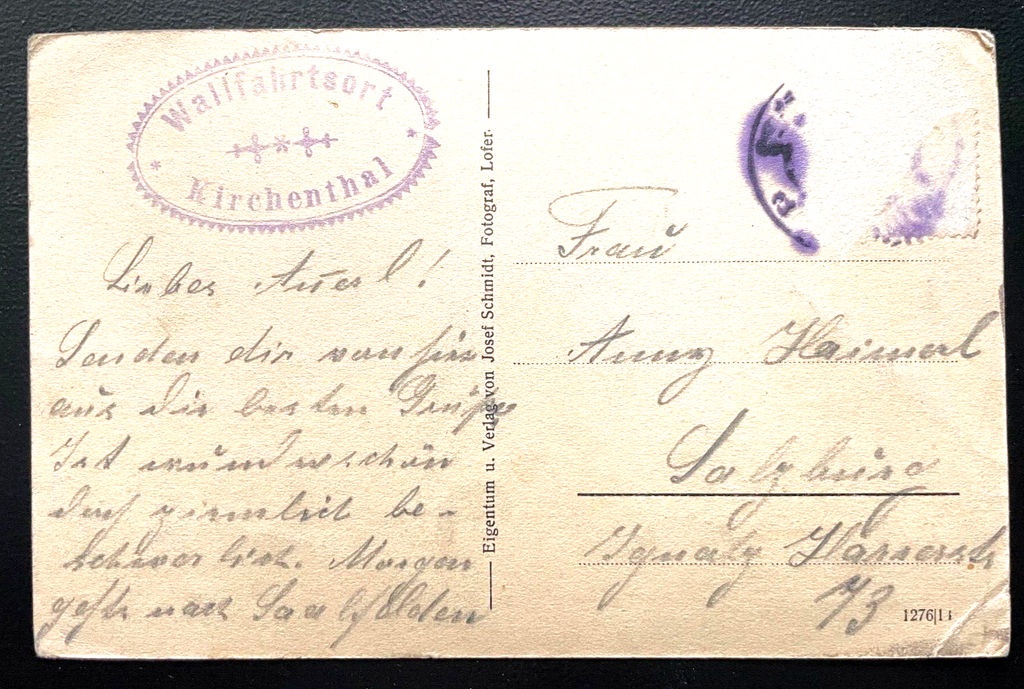 Wallfahrtsort
Kirchenthal
Liebes Annerl!
Senden dir von hier
aus die besten Grüße
Ist wunderschön
doch ziemlich be-
schwerlich. Morgen
gehts nach Saalfelden
Eigentum u. Verlag von Josef Schmidt, Fotograf, Lofer.
Frau
Anny Haimerl
Salzburg
Ignatz
13
1276|14